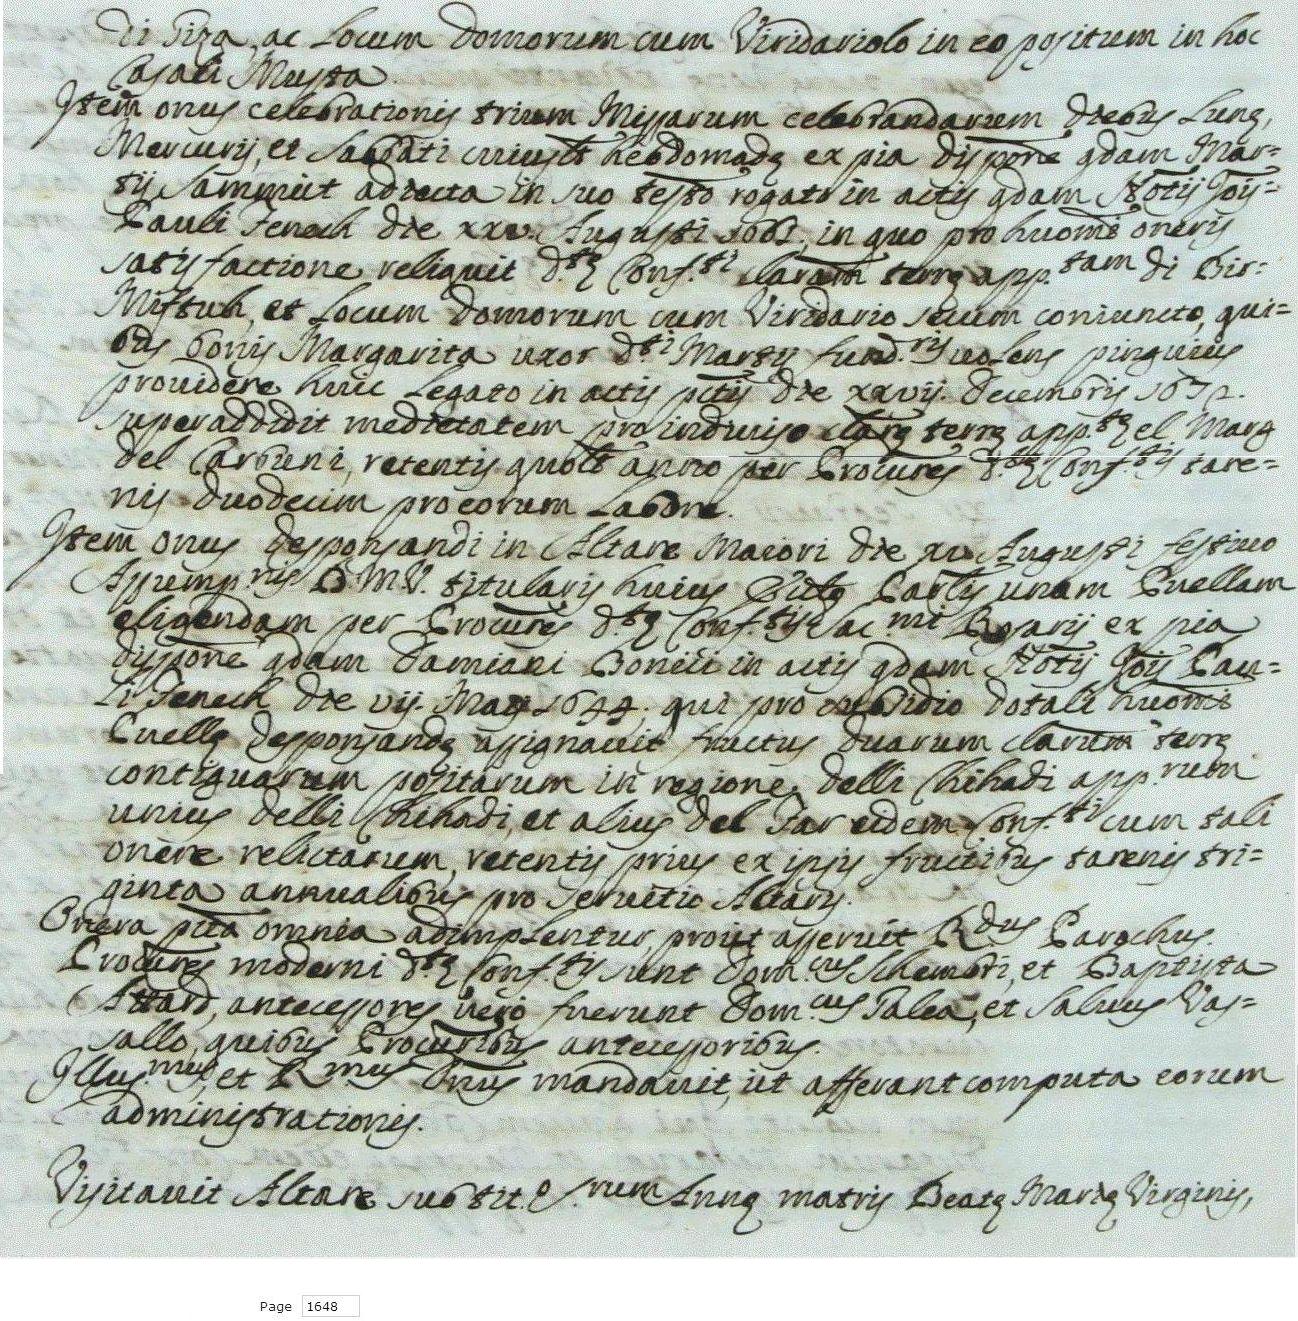 di Siza, ac Locum domorum cum Viridariolo in eo positum in hoc
Casali Musta
Item onus celebrationis trium Missarum celebrandarum diebus Lunę,
Mercurij, et Sabbati cuiuslt hebdomadę ex pia dispone qdam Mar=
tij Sammut adiecta in suo testo rogato in actis qdam Notij Jois
Pauli Fenech die xxv. Augusti 1661, in quo pro huomi oneris
satisfactione reliquit dtę Conf.ti clausam terrę app.tam di Bir=
Miftuh, et Locum domorum cum Viridario secum coniuncto, qui=
bus bonis Margarita uxor dti Martij fund.ris uolens pinguius
prouidere huic Legato in actis pttis die xxvij. decembris 1672.
superaddidit medietatem pro indiuiso clausę terrę app.tę el Marg
del Carbuni, retentis quolt anno per Procures dtę Conf.tis tare=
nis duodecim pro eorum Labore.
Item onus desponsandi in Altare Maiori die xv Augusti festiuo
Assump.nis B.M.V. titularis huius Parlis unam Puellam
eligendam per Procures dtę Conf.tis Sac.mi Rosarij ex pia
dispone qdam Damiani Bonici in actis qdam Notij Jois Pau=
li Fenech die vij. Maij 1644, qui pro subsidio dotali huomi
Puellę desponsandę assignauit fructus duarum clarum terrę
contiguarum positarum in regione delli Chihadi app.rum
unius delli Chihadi, et alius del Far eidem Conf.ti cum tali
onere relictarum, retentis prius ex ipsis fructibus tarenis tri=
ginta annualibus pro seruitio Altaris.
Onera ptta omnia adimplentur, prout asseruit Rdus Parochus.
Procures moderni dtę Conf.tis sunt Dom.cus Schembri, et Baptista
Attard, antecessores uero fuerunt Dom.cus Galea, et Saluus Vas=
sallo, quibus Procuribus antecessoribus.
Illus.mus, et Rmus Dnus mandauit, ut afferant computa eorum
administrationis.
Visitauit Altare sub tit.o S.rum Annę matris Beatę Marię Virginis,
Page 1648